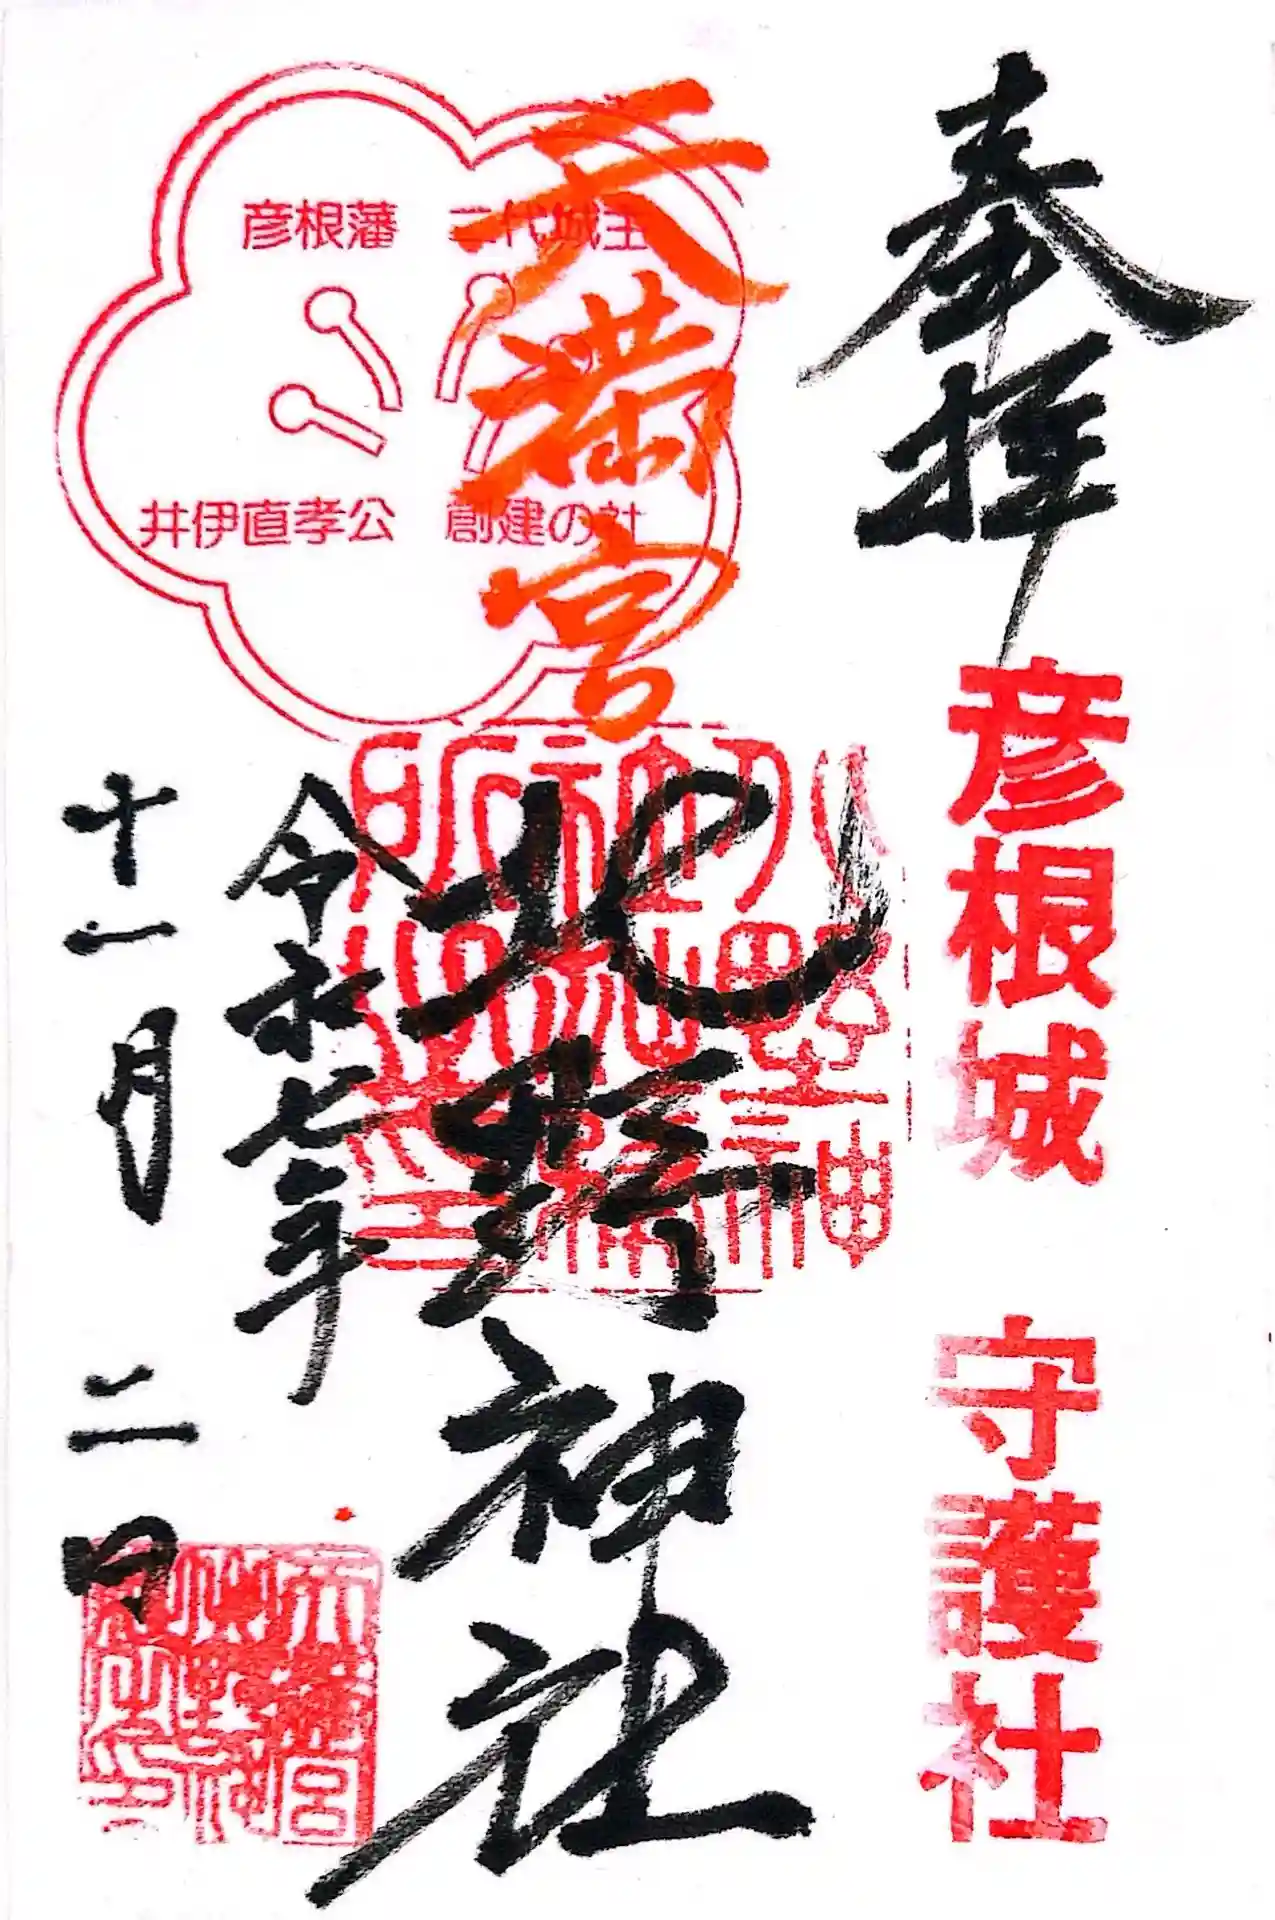 奉拝
彦根城 守護社
天満宮
彦根藩 二代城主
井伊直孝公 創建の社
北野神社
令和七年
十一月 二日